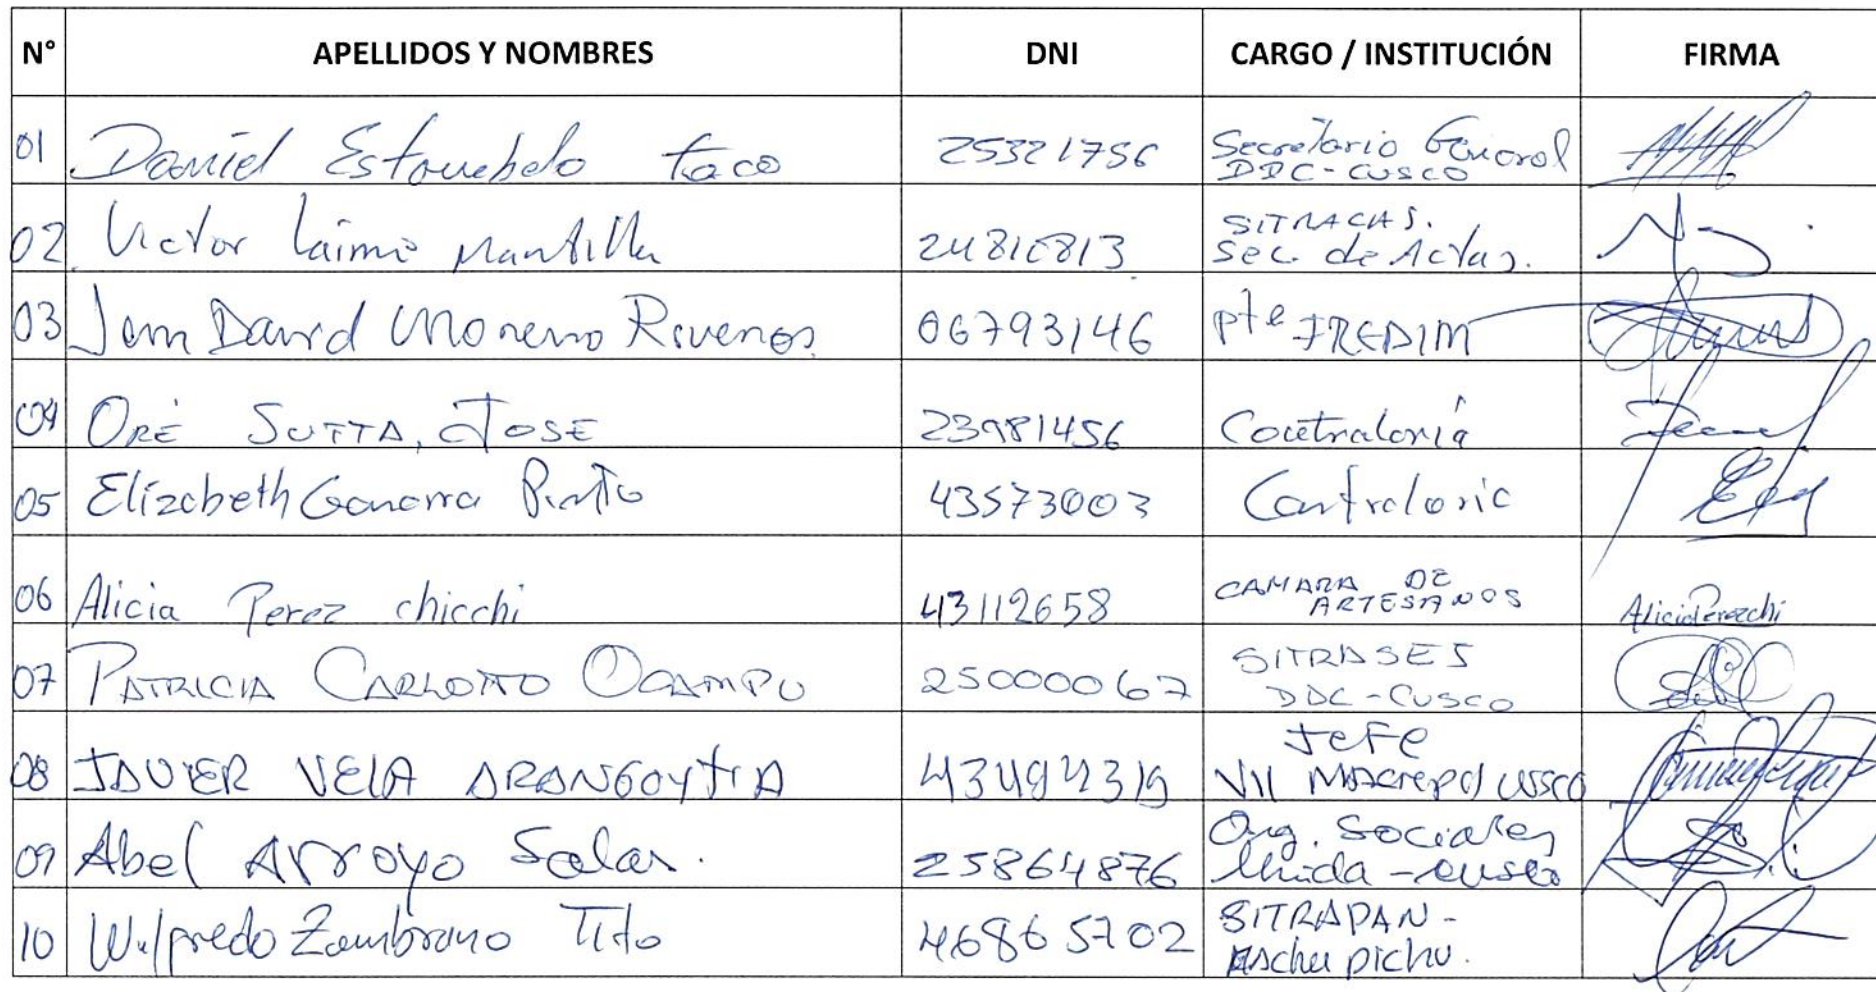 N° APELLIDOS Y NOMBRES DNI CARGO / INSTITUCIÓN FIRMA
01 Daniel Estruebelo Taco 25321756 Secretario General
DDC-CUSCO
02 Victor Laime Mantilla 24810813 SITRACAS.
Sec. de Actas.
03 David Moreno 06793146 pte
04 ORÉ SUTTA, JOSE 23981456 Contraloría
05 Elizabeth Pinto 43573003 Contraloria
06 Alicia Perez chicchi 43112658 CAMARA DE
ARTESANOS
07 PATRICIA CARLOTTO OCAMPO 25000067 SITRASES
DDC-CUSCO
08 JAVIER VELA ARANGOYTIA 43494319 JeFe
VII CUSCO
09 Abel Arroyo Salas. 25864876 Org. Sociales
- cusco
10 Wilfredo Zambrano Tito 46865702 SITRAPAN-
pichu.